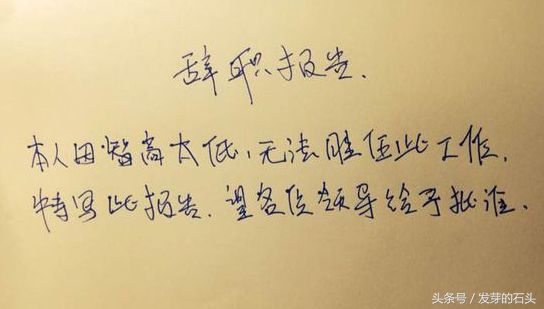 辞职报告.
本人因智商太低,无法胜任此工作,
特写此报告.望各位领导给予批准.
头条号/发芽的石头